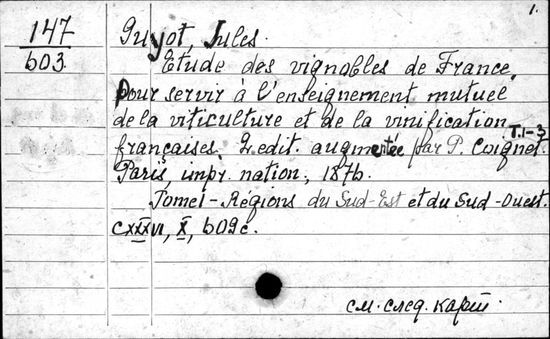 1.
147
603
Guyot, Jules.
Etude des vignobles de France,
pour servir à l'enseignement mutuel
de la viticulture et de la vinification
T.1-3
françaises. 2 edit. augmentée par P. Coignet.
Paris, impr. nation, 1876.
Tome I - Régions du Sud-Est et du Sud-Ouest.
CXXXVI, X, 609 c.
см. след. карт.